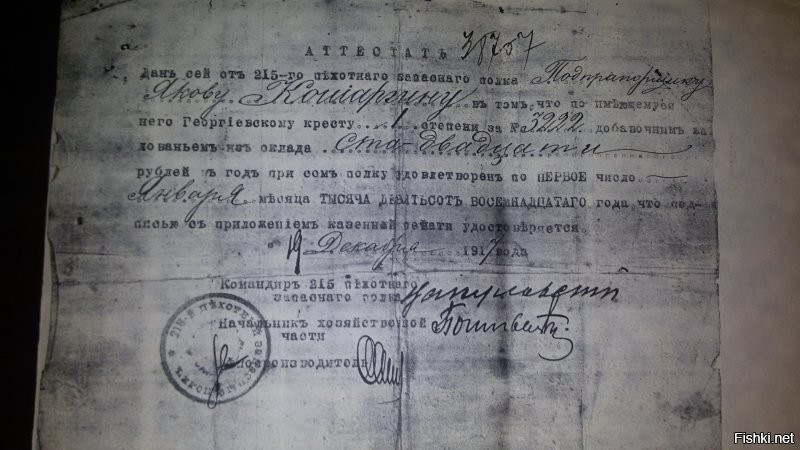 АТТЕСТАТЪ 38757
Данъ сей отъ 215-го пѣхотнаго запаснаго полка Подпрапорщику
Якову Кошаргину въ томъ, что по имѣющемуся
него Георгіевскому кресту 1 степени за № 3222 добавочнымъ жа
лованьемъ изъ оклада Ста-двадцати
рублей въ годъ при сомъ полку удовлетворенъ по ПЕРВОЕ число
Января мѣсяца ТЫСЯЧА ДЕВЯТЬСОТЪ ВОСЕМНАДЦАТАГО года, что под-
писью съ приложеніемъ казенной печати удостовѣряется.
19 Декабря 1917 года
Командиръ 215 пѣхотнаго
запаснаго полка
Начальникъ хозяйственной
части
Дѣлопроизводитель
215-й пѣхотный запасный полкъ
Fishki.net